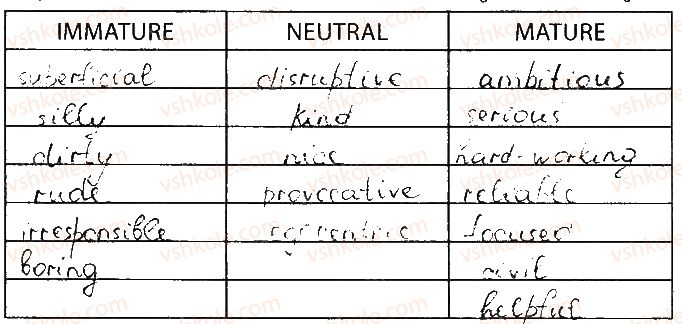 IMMATURE NEUTRAL MATURE
superficial disruptive ambitious
silly kind serious
dirty nice hard-working
rude provocative reliable
irresponsible egocentric focused
boring civil
helpful